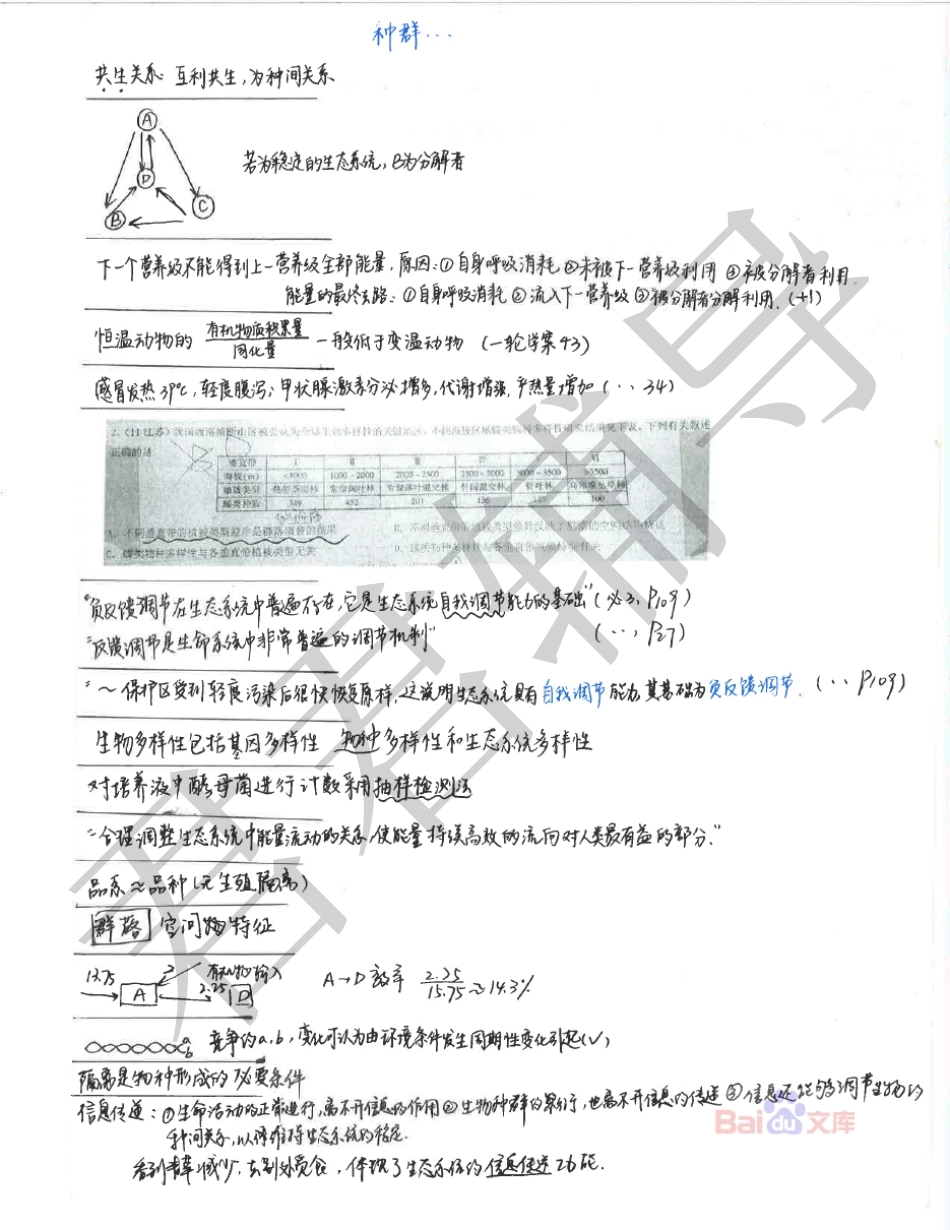 种群…
共生关系: 互利共生,为种间关系
A
D
B
C
若为稳定的生态系统,B为分解者
下一个营养级不能得到上一营养级全部能量,原因:①自身呼吸消耗 ②未被下一营养级利用 ③被分解者利用.
能量的最终去路:①自身呼吸消耗 ②流入下一营养级 ③被分解者分解利用.(+1)
恒温动物的 有机物质积累量/同化量 一般低于变温动物 (一轮学案93)
感冒发热39℃,轻度腹泻;甲状腺激素分泌增多,代谢增强,产热量增加(‥34)
2.(11江苏)我国西南横断山区被公认为全球生物多样性的关键地区,不同海拔区域蝶类物种多样性调查结果见下表。下列有关叙述
正确的是
垂直带 I II III IV V VI
海拔(m) <1000 1000~2000 2000~2500 2500~3000 3000~3500 >3500
植被类型 常绿阔叶林 针阔混交林 针叶林
蝶类种数 349 452 201 136 125 100
A. 不同垂直带的植被类型差异是群落演替的结果
C. 蝶类物种多样性与各垂直带植被类型无关
"负反馈调节在生态系统中普遍存在,它是生态系统自我调节能力的基础"(必3,P109)
"反馈调节是生命系统中非常普遍的调节机制" (‥,P27)
"~保护区受到轻度污染后很快恢复原样,这说明生态系统具有自我调节能力,其基础为负反馈调节.(‥P109)
生物多样性包括基因多样性 物种多样性和生态系统多样性
对培养液中酵母菌进行计数采用抽样检测法
"合理调整生态系统中能量流动的关系,使能量持续高效的流向对人类最有益的部分."
品系≈品种(无生殖隔离)
群落 空间物特征
13.75 A 2.25 D 有机物输入
A→D 效率 2.25/15.75≈14.3%
a
b
竞争的a,b,变化可认为由环境条件发生周期性变化引起(√)
隔离是物种形成的必要条件
信息传递:①生命活动的正常进行,离不开信息的作用②生物种群的繁衍,也离不开信息的传递③信息还能够调节生物的
种间关系,以维持生态系统的稳定.
看到青草减少,去别处觅食,体现了生态系统的信息传递功能.
Bai du 文库
君君辅导